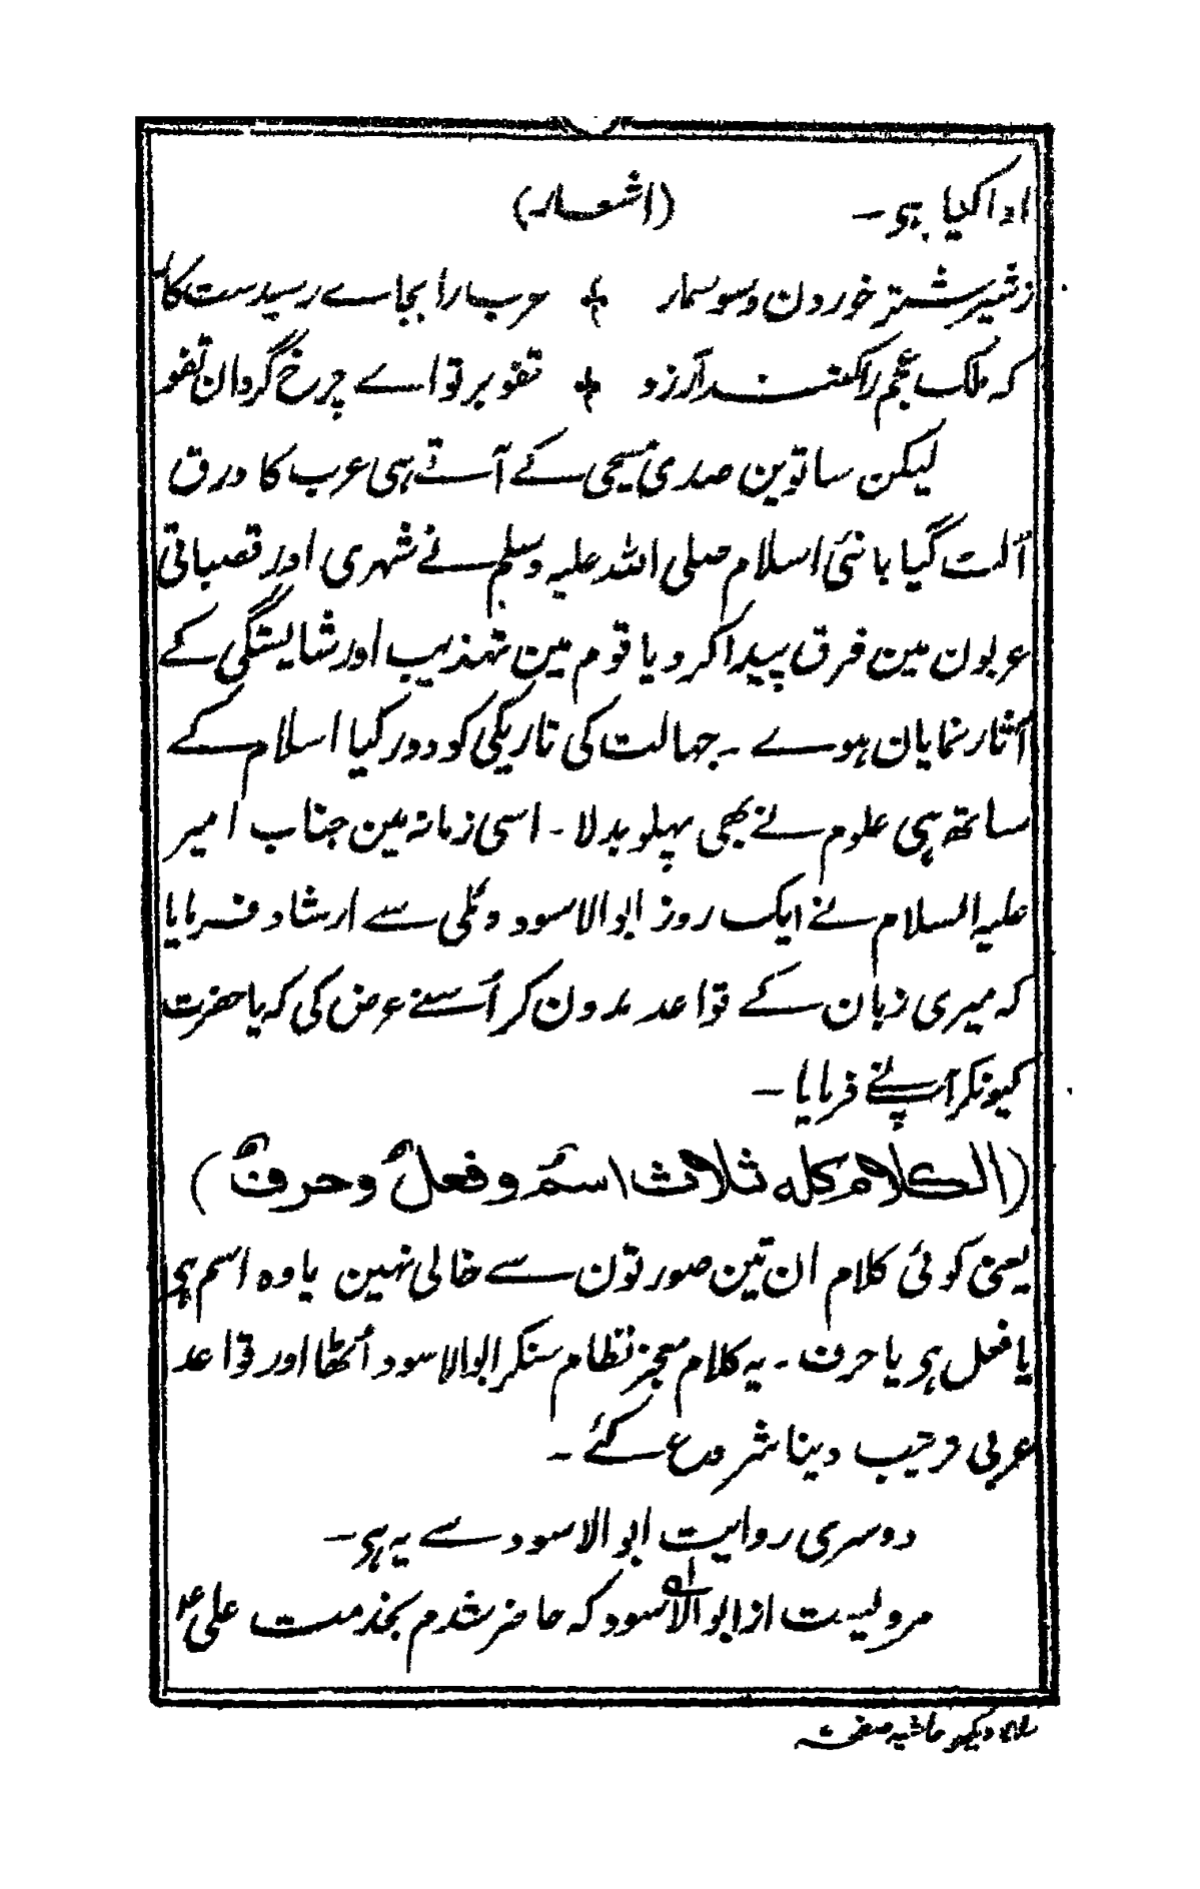 ادا کیا ہو۔ (اشعار)
زشیر شتر خوردن و سوسمار ؞ عرب را بجاے رسیدست کار
کہ ملک عجم را کنند آرزو ؞ تفو بر تو اے چرخ گردان تفو
لیکن ساتوین صدی مسیحی کے آتے ہی عرب کا ورق
اُلٹ گیا بانئ اسلام صلی اللہ علیہ وسلم نے شہری اور قصباتی
عربون مین فرق پیدا کر دیا قوم مین تہذیب اور شایستگی کے
آثار نمایان ہوے ۔ جہالت کی تاریکی کو دور کیا اسلام کے
ساتھ ہی علوم نے بھی پہلو بدلا ۔ اسی زمانہ مین جناب امیر
علیہ السلام نے ایک روز ابو الاسود وئلی سے ارشاد فرمایا
کہ میری زبان کے قواعد مدون کر اُسنے عرض کی کہ یا حضرت
کیونکر آپنے فرمایا ۔
(الکلام کله ثلاث اسمٌ و فعلٌ و حرفٌ)
یعنی کوئی کلام ان تین صورتون سے خالی نہین یا وہ اسم ہی
یا فعل ہی یا حرف ۔ یہ کلام معجز نظام سنکر ابو الاسود اُٹھا اور قواعد
عربی ترتیب دینا شروع کئے ۔
دوسری روایت ابو الاسود سے یہ ہی ۔
مرویست از ابو الاسود کہ حاضر شدم بخدمت علی ؑ
دیکھو حاشیہ صفحہ